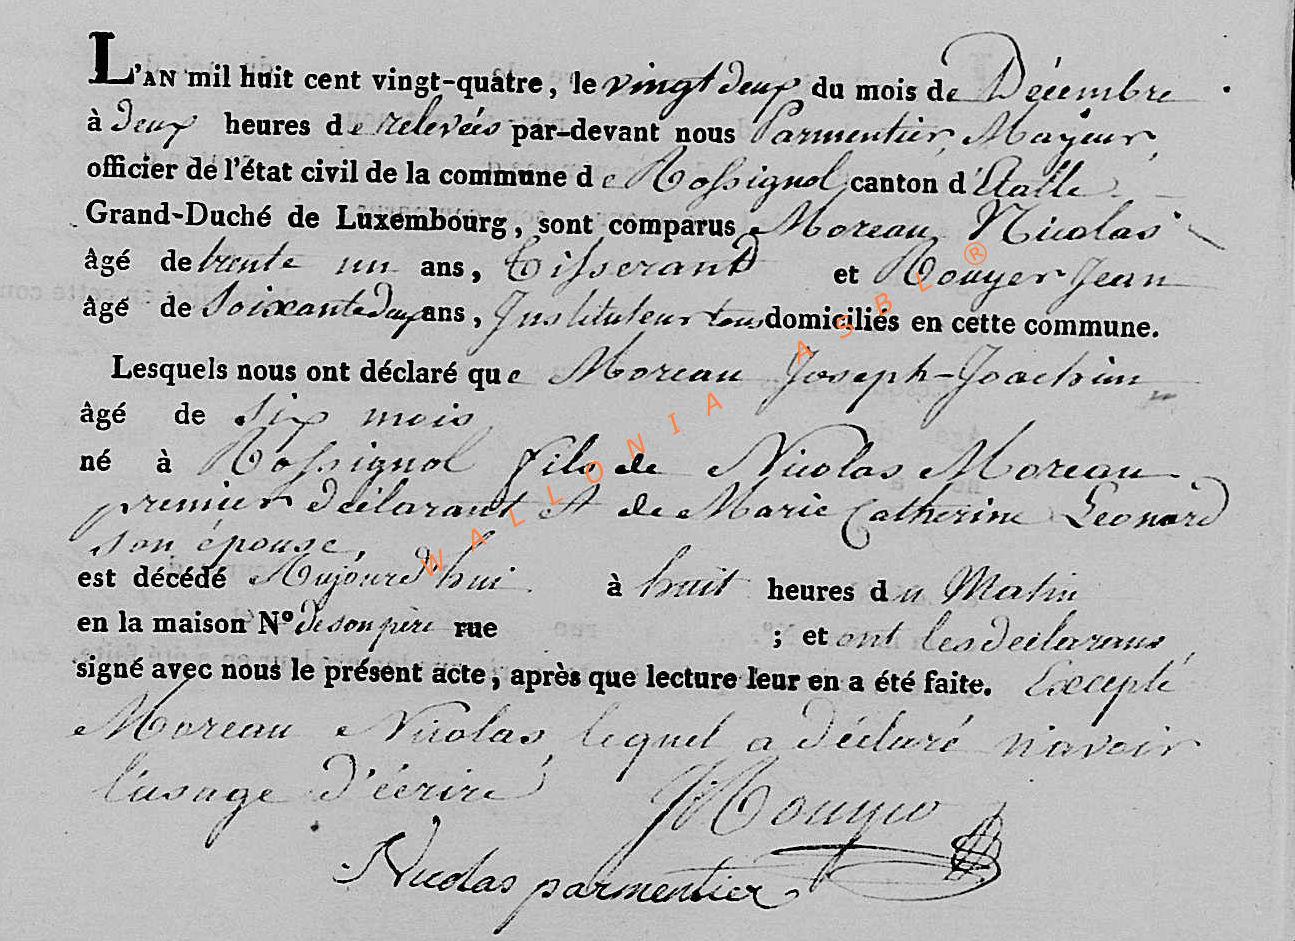 L'AN mil huit cent vingt-quatre, le vingt deux du mois de Décembre
à deux heures de relevées par-devant nous Parmentier, Mayeur,
officier de l'état civil de la commune de Rossignol, canton d'Etalle
Grand-Duché de Luxembourg, sont comparus Moreau Nicolas
âgé de trente un ans, tisserand et Rouyer Jean
âgé de Soixante deux ans, Instituteur tous domiciliés en cette commune.
Lesquels nous ont déclaré que Moreau Joseph-Joachim
âgé de Six mois
né à Rossignol fils de Nicolas Moreau
premier déclarant et de Marie Catherine Leonard
son épouse,
est décédé Aujourd'hui à huit heures du Matin
en la maison N° de son père rue ; et ont les déclarans
signé avec nous le présent acte, après que lecture leur en a été faite. Excepté
Moreau Nicolas, lequel a déclaré n'avoir
l'usage d'écrire
JRouyer
Nicolas parmentier
WALLONIA ASBL ®